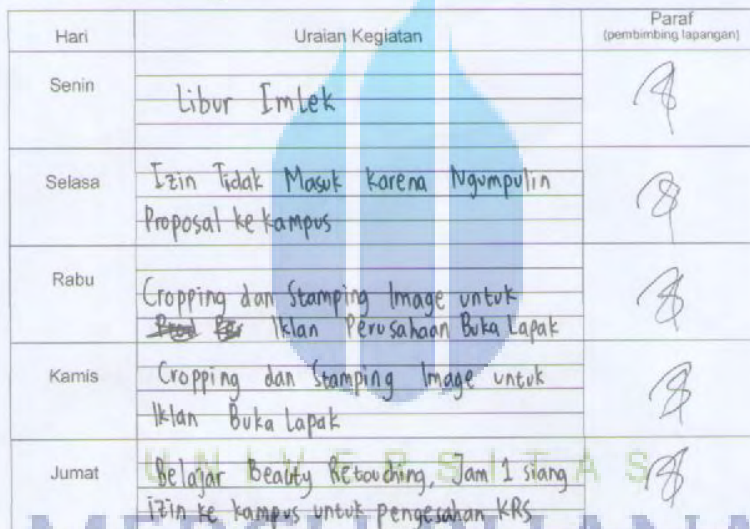 Hari Uraian Kegiatan Paraf
(pembimbing lapangan)
Senin Libur Imlek
Selasa Izin Tidak Masuk karena Ngumpulin
Proposal ke kampus
Rabu Cropping dan Stamping Image untuk
Iklan Perusahaan Buka Lapak
Kamis Cropping dan Stamping Image untuk
Iklan Buka Lapak
Jumat Belajar Beauty Retouching, Jam 1 siang
izin ke kampus untuk pengesahan KRS
UNIVERSITAS